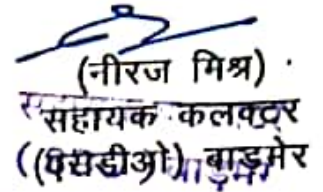 (नीरज मिश्र)
सहायक कलक्टर
(एसडीओ) बाड़मेर